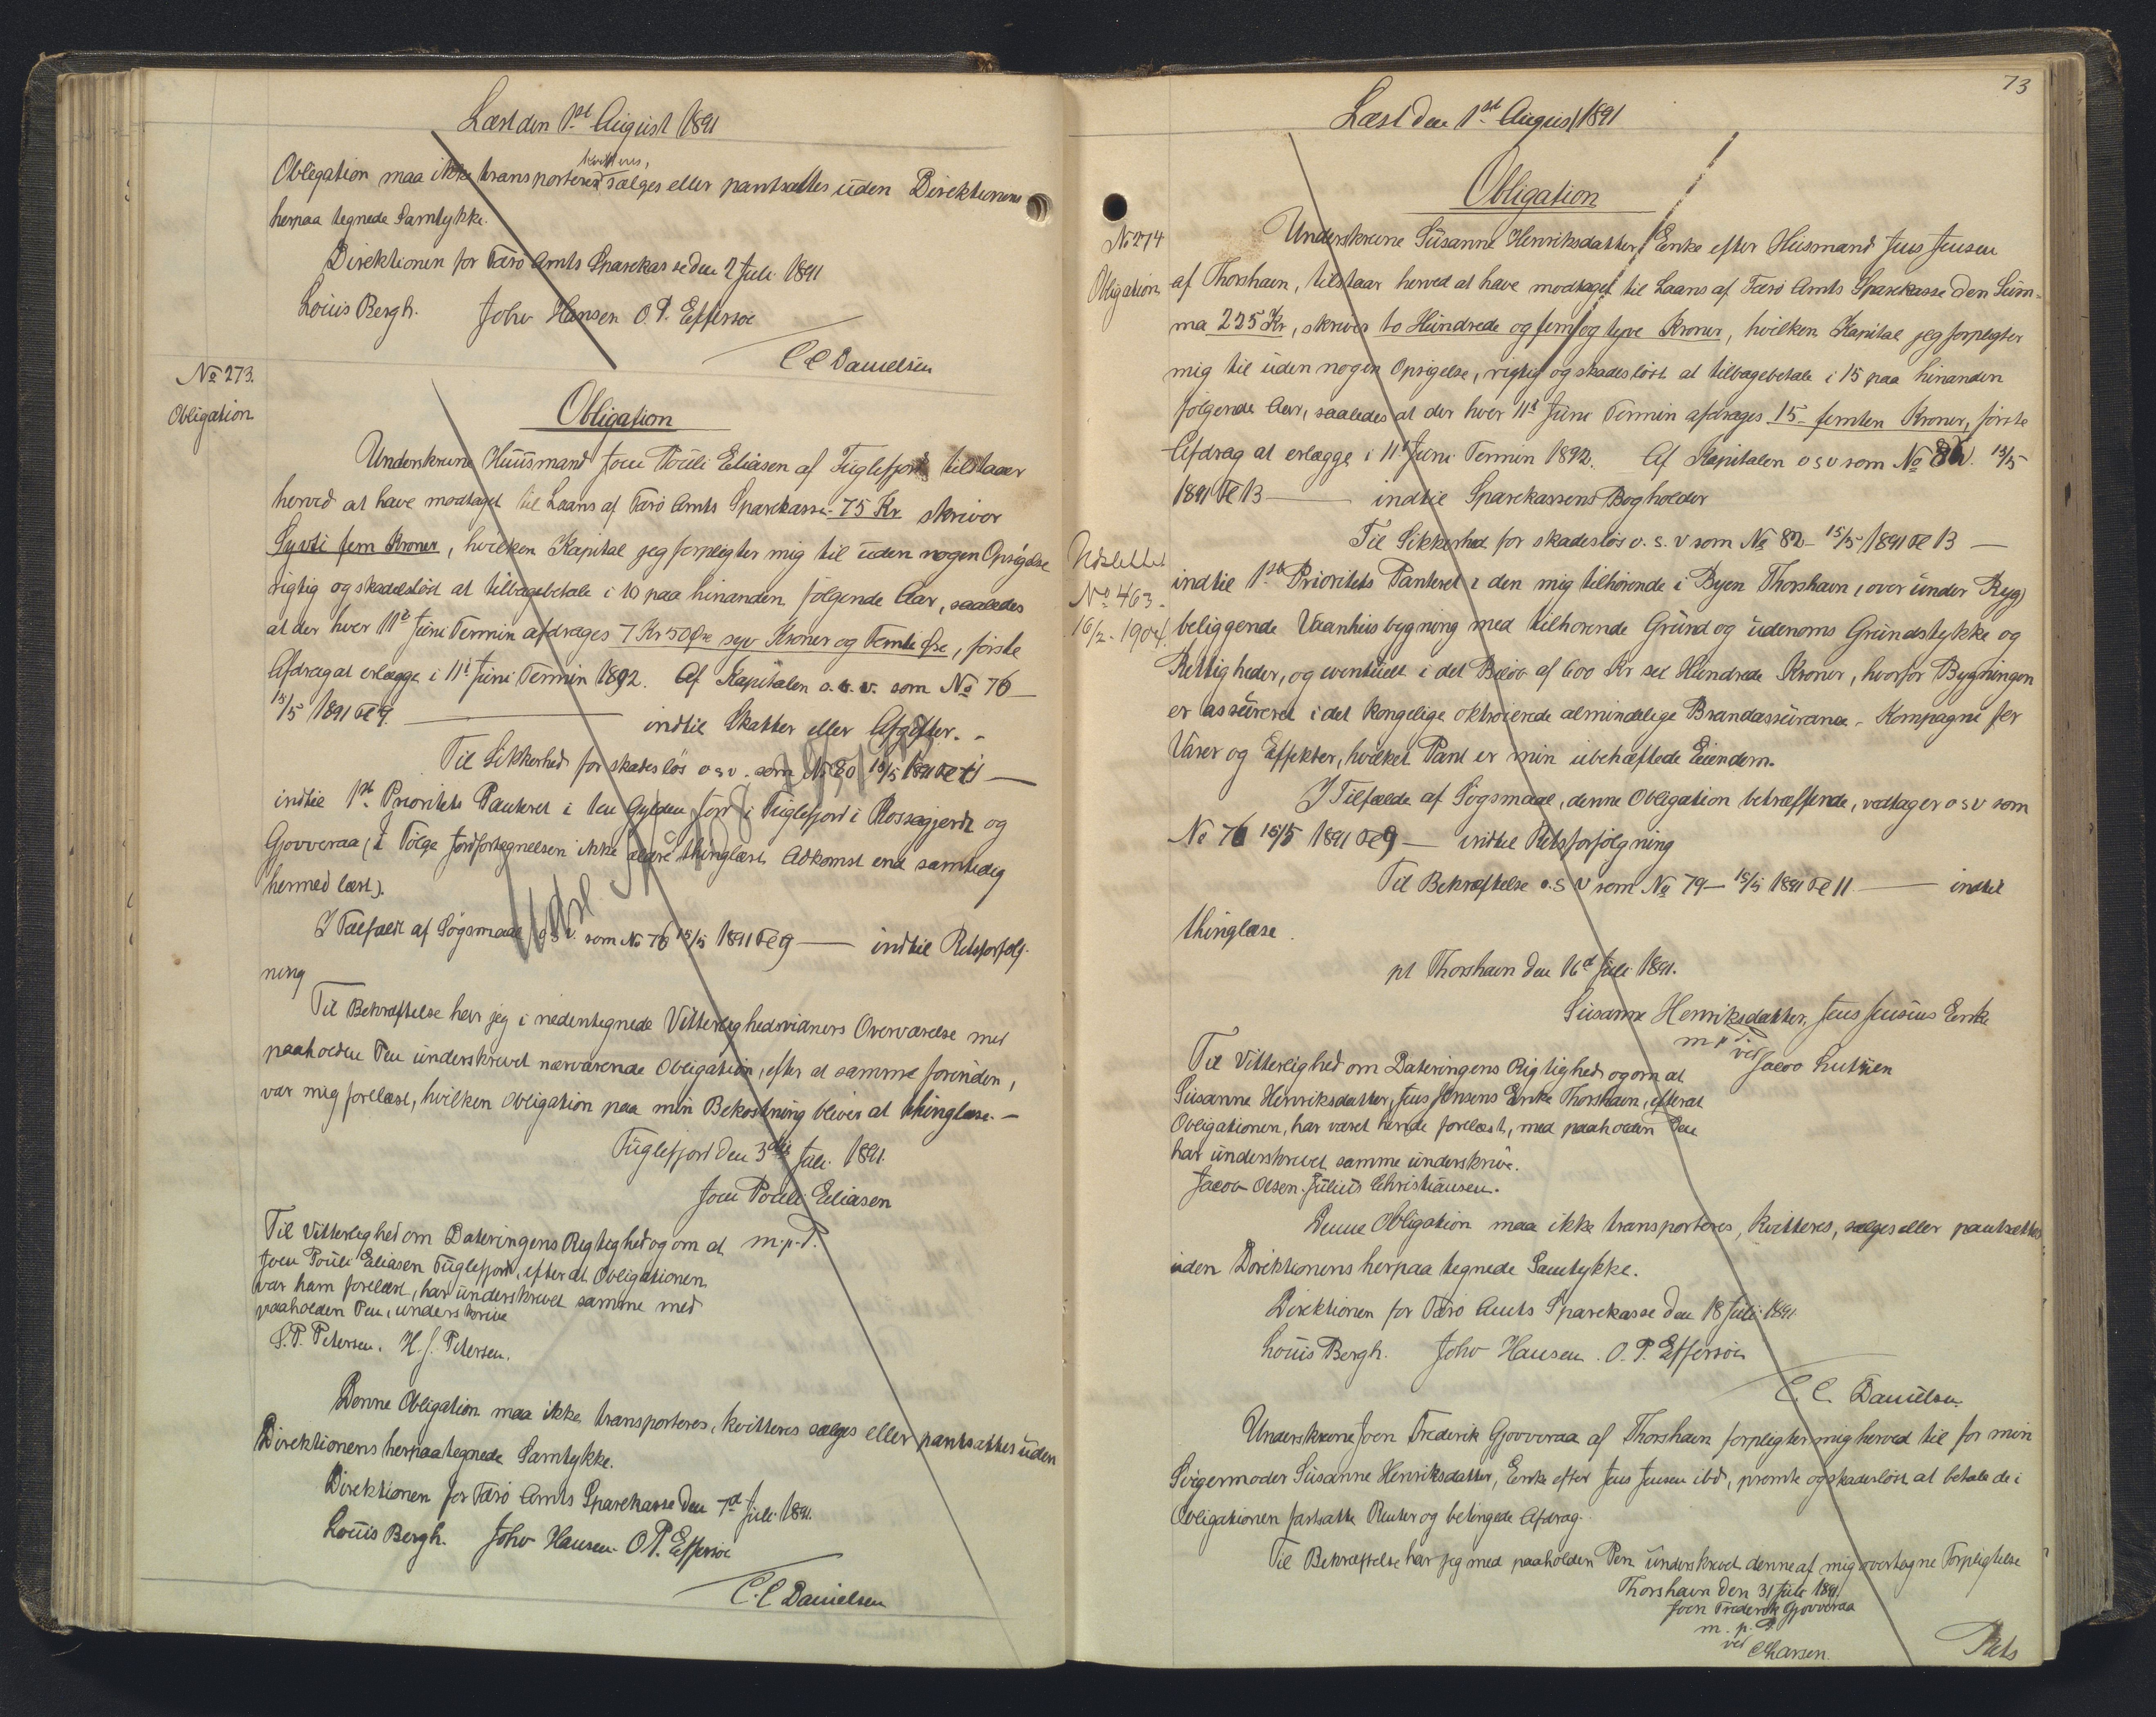 Læst den 1st August 1891
Obligation maa ikke transporteres kvitteres, sælges eller pantsættes uden Direktionens
herpaa tegnede Samtykke.
Direktionen for Færø Amts Sparekasse den 2 Juli 1891
Louis Bergh. Johs Hansen O. P. Effersøe
C C Danielsen
No 273.
Obligation
Obligation
Underskrevne Huusmand Joen Pouli Eliasen af Fuglefjord tilstaaer
herved at have modtaget til Laans af Færø Amts Sparekasse 75 Kr skriver
Syvti fem Kroner, hvilken Kapital jeg forpligter mig til uden nogen Opsigelse
rigtig og skadesløst at tilbagebetale i 10 paa hinanden følgende Aar, saaledes
at der hver 11te Juni Termin afdrages 7 Kr 50 Øre syv Kroner og Femti Øre, første
Afdrag at erlægge i 11te Juni Termin 1892. Af Kapitalen o.s.v. som No 76
15/5 1891 Fol 9. — indtil Skatter eller Afgifter. -
Til Sikkerhed for skadesløs o s v. som No 80 15/5 1891 Fol 11 —
indtil 1st Prioritets Panteret i ten Gylden Jord i Fuglefjord i Rossagjerde og
Gjovveraa (I Følge Jordfortegnelsen ikke ældre thinglæst Adkomst end samtidig
hermed læst).
I Tilfælde af Søgsmaal o s v. som No 76 15/5 1891 Fol 9 — indtil Retsforfølg-
ning
Til Bekræftelse har jeg i nedentegnede Vitterlighedsvidners Overværelse med
paaholden Pen underskrevet nærværende Obligation, efter at samme forinden,
var mig forelæst, hvilken Obligation paa min Bekostning bliver at thinglæse. —
Fuglefjord den 3die Juli 1891.
Joen Pouli Eliasen
m. p. P.
Til Vitterlighed om Dateringens Rigtighed og om at
Joen Pouli Eliasen Fuglefjord, efter at Obligationen
var ham forelæst, har underskrevet samme med
paaholden Pen, underskrive
S. P. Petersen. H. J. Petersen.
Denne Obligation maa ikke transporteres, kvitteres sælges eller pantsættes uden
Direktionens herpaa tegnede Samtykke.
Direktionen for Færø Amts Sparekasse den 7d Juli 1891.
Louis Bergh. Johs Hansen. O. P. Effersøe
C. C Danielsen
73
Læst den 1st August 1891
Obligation
No 274
Obligation
Underskrevne Susanne Henriksdatter, Enke efter Husmand Jens Jensen
af Thorshavn, tilstaar herved at have modtaget til Laans af Færø Amts Sparekasse den Sum-
ma 225 Kr, skriver to Hundrede og fem og tyve Kroner, hvilken Kapital jeg forpligter
mig til uden nogen Opsigelse, rigtig og skadesløst at tilbagebetale i 15 paa hinanden
følgende Aar, saaledes at der hver 11te Juni Termin afdrages 15 - femten Kroner, første
Afdrag at erlægge i 11te Juni Termin 1892. Af Kapitalen o s v som No 15/5
1891 Fol 13 — indtil Sparekassens Bogholder
Til Sikkerhed for skadesløs o. s. v som No 82 - 15/5 1891 Fol 13 —
Udslettet
No 463.
16/2 - 1904.
indtil 1ste Prioritets Panteret i den mig tilhørende i Byen Thorshavn (over under Ryg)
beliggende Vaanhusbygning med tilhørende Grund og udenoms Grundstykke og
Rettigheder, og eventuelt i det Beløb af 600 Kr sex Hundrede Kroner, hvorfor Bygningen
er assureret i det Kongelige oktroierede almindelige Brandassurance - Kompagni for
Varer og Effekter, hvilket Pant er min ubehæftede Eiendom.
I Tilfælde af Søgsmaal, denne Obligation betræffende, vedtager o s v som
No 76 15/5 1891 Fol 9 — indtil Retsforfølgning
Til Bekræftelse o. s v som No 79 - 15/5 1891 Fol 11 — indtil
thinglæse.
pt Thorshavn den 16d Juli 1891.
Susanne Henriksdatter, Jens Jensens Enke
m p P
ved Jacob Lutzen
Til Vitterlighed om Dateringens Rigtighed og om at
Susanne Henriksdatter, Jens Jensens Enke Thorshavn, efterat
Obligationen, har været hende forelæst, med paaholden Pen
har underskrevet samme underskrive.
Jacob Olsen. Julius Christiansen.
Denne Obligation maa ikke transporteres, kvitteres, sælges eller pantsættes
uden Direktionens herpaa tegnede Samtykke.
Direktionen for Færø Amts Sparekasse den 18 Juli 1891
Louis Bergh. Johs Hansen. O. P. Effersøe
C. C. Danielsen.
Underskrevne Joen Frederik Gjovveraa af Thorshavn forpligter mig herved til for min
Svigermoder Susanne Henriksdatter, Enke efter Jens Jensen ibd, promte og skadesløst at betale de i
Obligationen fastsatte Renter og betingede Afdrag.
Til Bekræftelse har jeg med paaholden Pen underskrevet denne af mig overtagne Forpligtelse
Thorshavn den 31 Juli 1891
Joen Frederik Gjovveraa
m. p. P.
ved
Rets